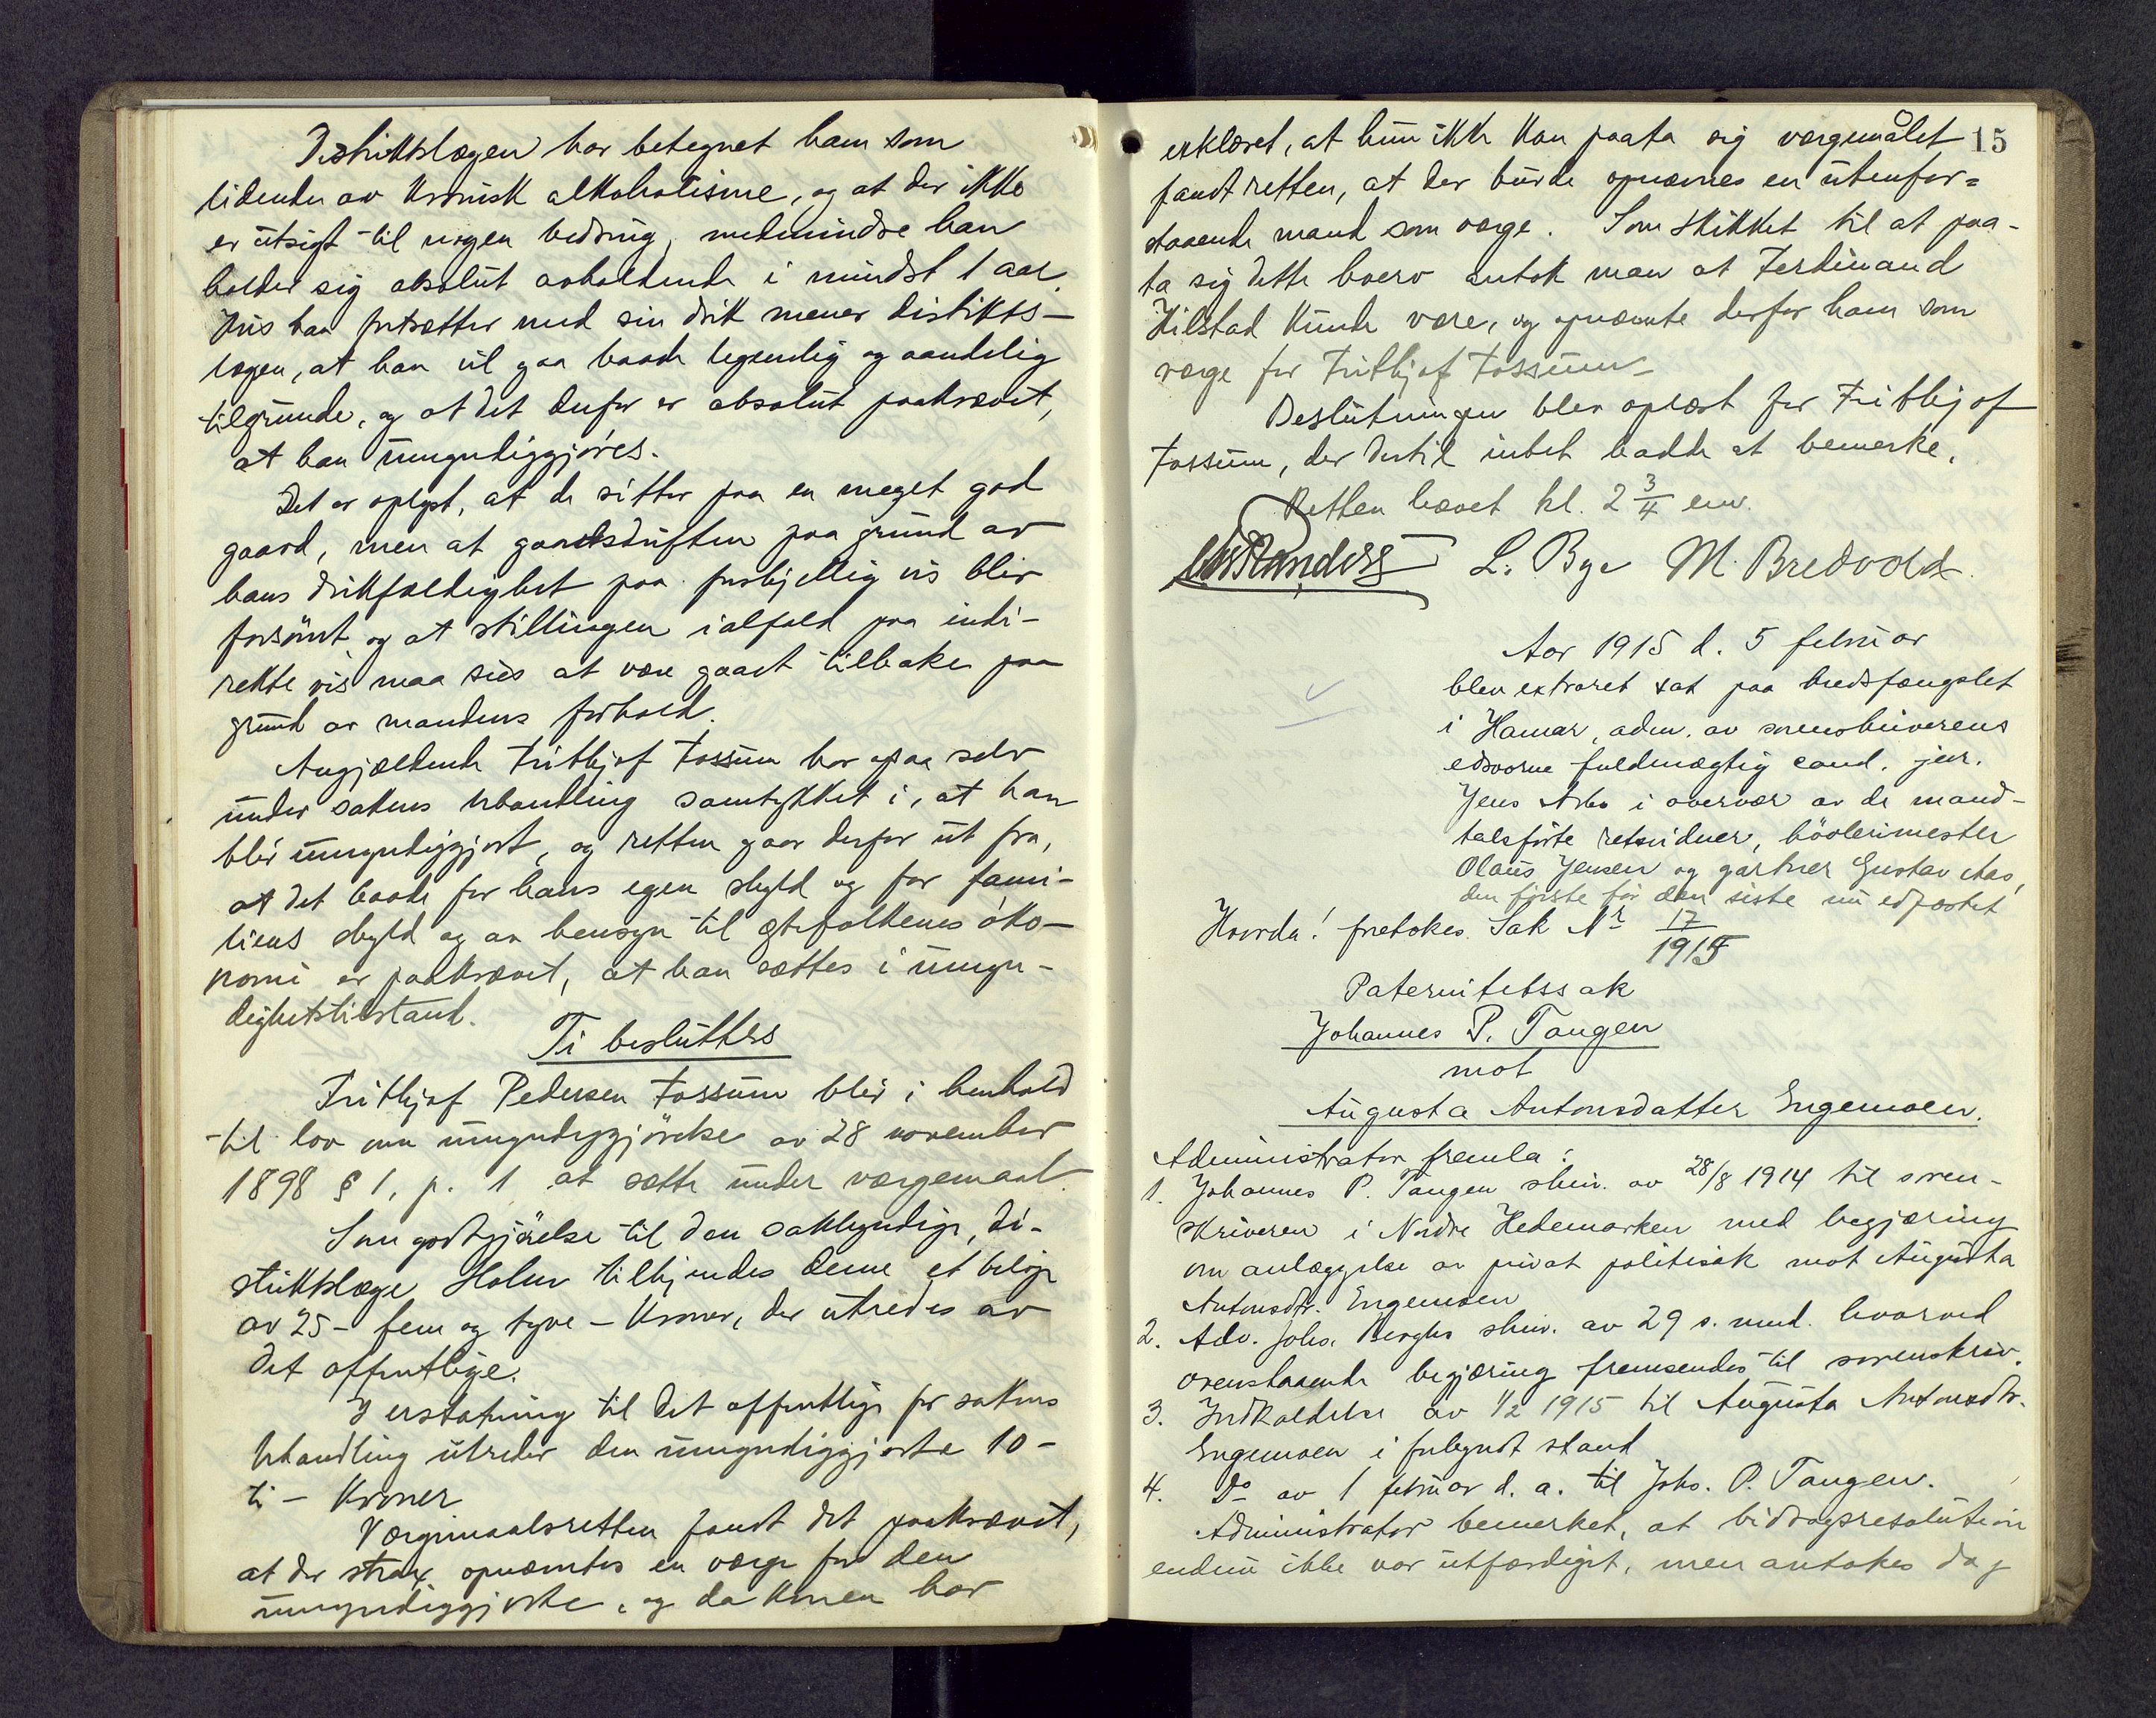 Distriktslægen har betegnet ham som
lidende av kronisk alkoholisme, og at der ikke
er utsigt til nogen bedring, medmindre han
holder sig absolut avholdende i mindst 1 aar.
Hvis han fortsætter med sin drik mener distrikts-
lægen, at han vil gaa baade legemlig og aandelig
tilgrunde, og at det derfor er absolut paakrævet,
at han umyndiggjøres.
Det er oplyst, at de sitter paa en meget god
gaard, men at gaardsdriften paa grund av
hans drikfældighet paa forskjellig vis blir
forsømt, og at stillingen ialfald paa indi-
rekte vis maa sies at være gaaet tilbake paa
grund av mandens forhold.
Angjældende Frithjof Fossum har ogsaa selv
under sakens behandling samtykket i, at han
blir umyndiggjort, og retten gaar derfor ut fra,
at det baade for hans egen skyld og for fami-
liens skyld og av hensyn til egtefolkenes øko-
nomi er paakrævet, at han sættes i umyn-
dighetstilstand.
Ti besluttes
Frithjof Pedersen Fossum blir i henhold
til lov om umyndiggjørelse av 28 november
1898 § 1, p. 1 at sætte under værgemaal.
Som godtgjørelse til den sakkyndige, di-
striktslæge Holm tilkjendes denne et beløp
av 25 - fem og tyve - kroner, der utredes av
det offentlige.
I erstatning til det offentlige for sakens
behandling utreder den umyndiggjorte 10 -
ti - kroner
Værgemaalsretten fandt det paakrævet,
at der strax opnævntes en værge for den
umyndiggjorte, og da konen har
15
erklæret, at hun ikke kan paata sig værgemålet
fandt retten, at der burde opnævnes en utenfor=
staaende mand som værge. Som skikket til at paa-
ta sig dette hverv antok man at Ferdinand
Kilstad kunde være, og opnævnte derfor ham som
værge for Frithjof Fossum
Beslutningen blev oplæst for Frithjof
Fossum, der dertil intet hadde at bemerke.
Retten hævet kl. 2 3/4 em.
L. Bye M. Bredvold
Aar 1915 d. 5 februar
blev extraret sat paa kredsfængslet
i Hamar, adm. av sorenskriverens
edsvorne fuldmægtig cand. jur.
Jens Arbo i overvær av de mand-
talsførte retsvidner, høvlerimester
Olaus Jensen og gartner Gustav Aas,
den første før den siste nu edfæstet
Hvorda! foretokes Sak Nr 17
1915
Paternitetssak
Johannes P. Tangen
mot
Augusta Antonsdatter Engemoen.
Administrator fremla:
1. Johannes P. Tangen skriv. av 28/8 1914 til soren-
skriveren i Nordre Hedemarken med begjæring
om anlæggelse av privat politisak mot Augusta
Antonsdtr. Engemoen
2. Adv. Johs. Berghs skriv. av 29 s. mnd. hvorved
ovenstaaende begjæring fremsendes til sorenskriv.
3. Indkaldelse av 1/2 1915 til Augusta Antonsdtr.
Engemoen i forkyndt stand
4. Do av 1 februar d. a. til Johs. P. Tangen.
Administrator bemerket, at bidragsresolution
endnu ikke var utfærdiget, men antokes dog